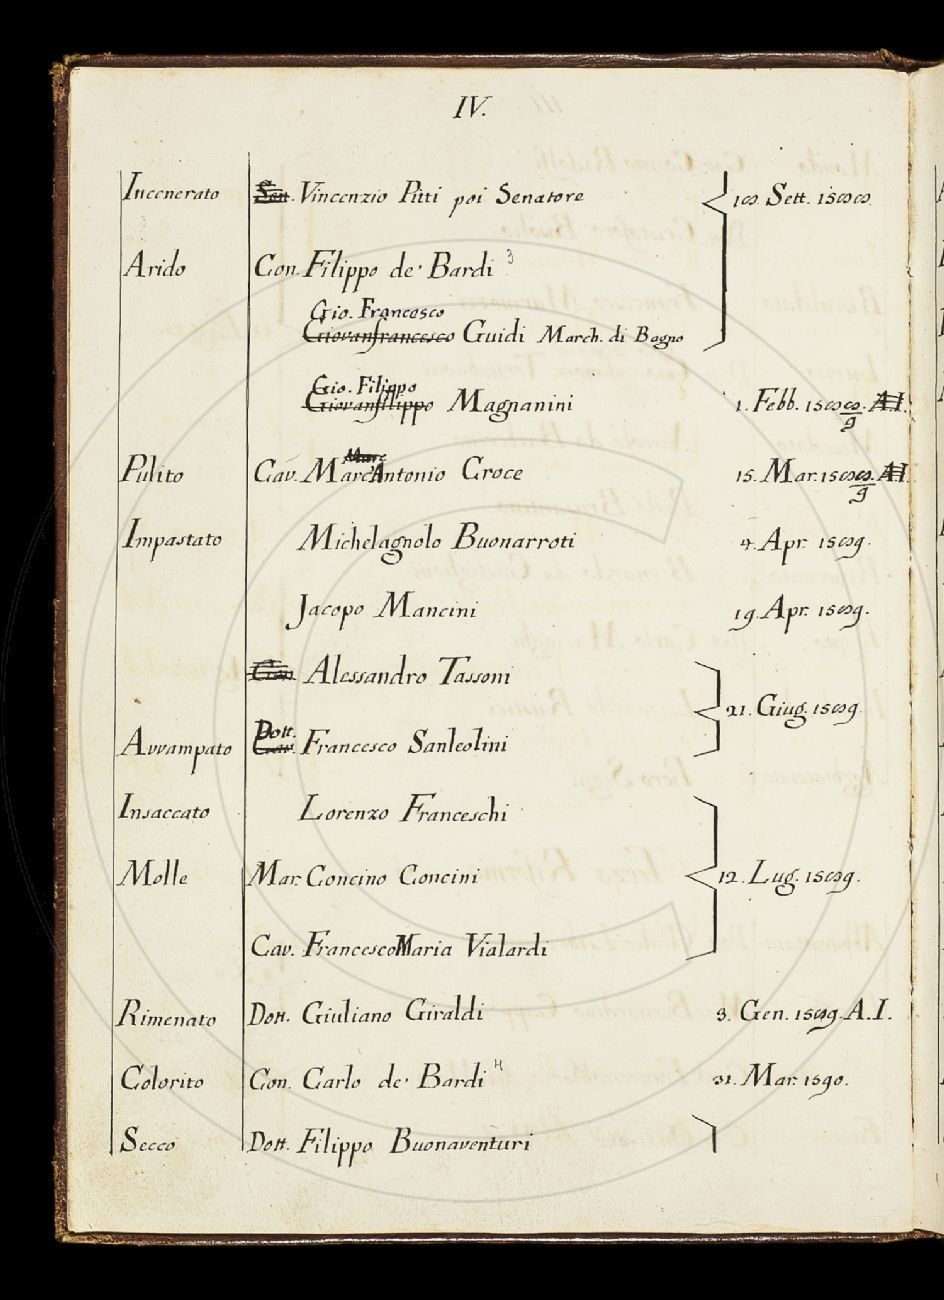 IV.
Incenerato ~~Sen.~~ Vincenzio Pitti poi Senatore 18. Sett. 1588.
Arido Con. Filippo de' Bardi 3
Gio. Francesco
~~Giovanfrancesco~~ Guidi March. di Bagno
Gio. Filippo
~~Giovanfilippo~~ Magnanini 1. Febb. 1588/9. ~~A.I.~~
Pulito Cav. MarcAntonio Croce 15. Mar. 1588/9. ~~A.I.~~
Impastato Michelagnolo Buonarroti 4. Apr. 1589.
Jacopo Mancini 19. Apr. 1589.
Alessandro Tassoni 21. Giug. 1589.
Dott.
Avvampato ~~Cav.~~ Francesco Sanleolini
Insaccato Lorenzo Franceschi
Molle Mar. Concino Concini 12. Lug. 1589.
Cav. FrancescoMaria Vialardi
Rimenato Dott. Giuliano Giraldi 3. Gen. 1589. A.I.
Colorito Con. Carlo de' Bardi 4 31. Mar. 1590.
Secco Dott. Filippo Buonaventuri